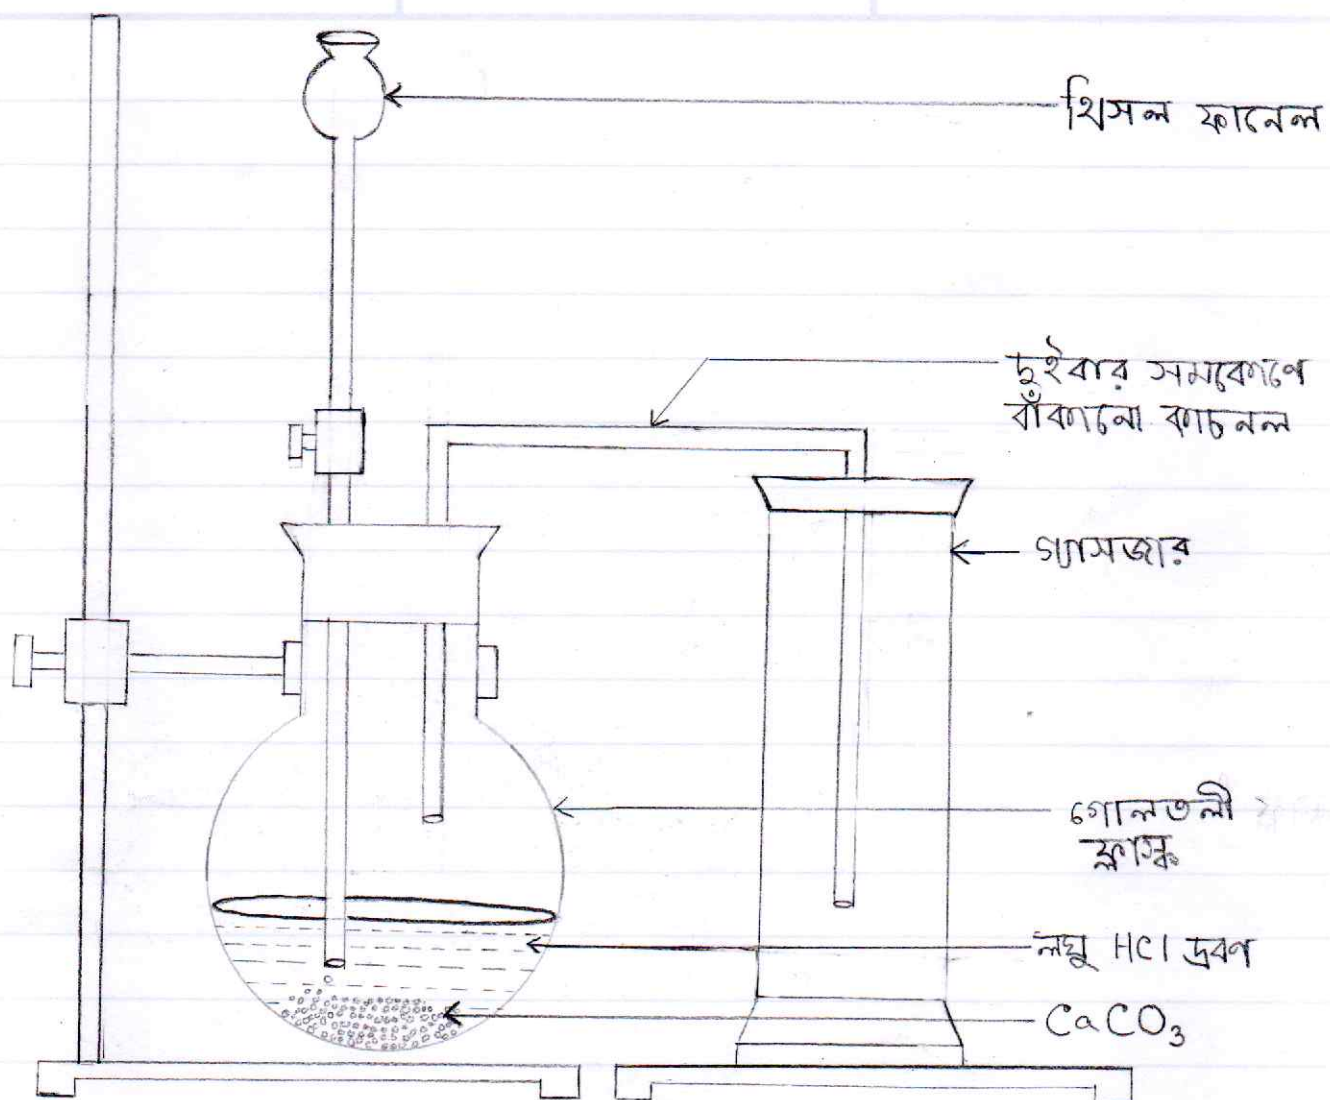 থিসল ফানেল
দুইবার সমকোণে
বাঁকানো কাচনল
গ্যাসজার
গোলতলী
ফ্লাস্ক
লঘু HCl দ্রবণ
CaCO₃